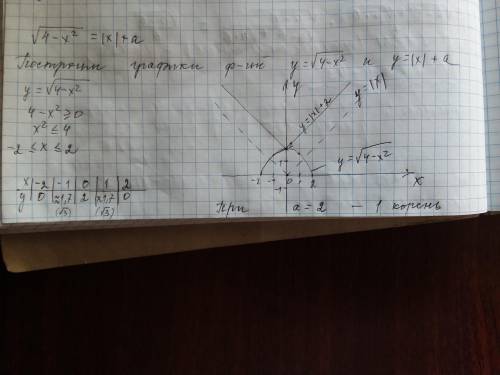 √4-x² = |x|+a
Построим графики ф-ий y=√4-x² и y=|x|+a
y=√4-x²
4-x²≥0
x²≤4
-2≤x≤2
x | -2 | -1 | 0 | 1 | 2
y | 0 | ≈1,7 (√3) | 2 | ≈1,7 (√3) | 0
y
y=|x|+2
y=|x|
y=√4-x²
2
1
-2 -1 0 1 2 x
-1
При a=2 — 1 корень